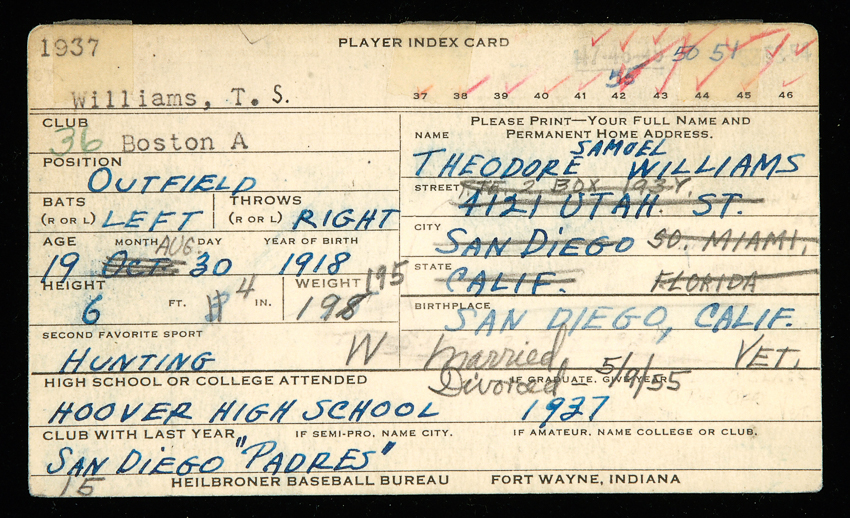 1937
PLAYER INDEX CARD
50 54
Williams, T. S.
37 38 39 40 41 42 43 44 45 46
CLUB
36 Boston A
PLEASE PRINT—YOUR FULL NAME AND
PERMANENT HOME ADDRESS.
POSITION
OUTFIELD
NAME
SAMUEL
THEODORE WILLIAMS
BATS
(R OR L) LEFT
THROWS
(R OR L) RIGHT
STREET RTE. 2 BOX 193-Y.
4121 UTAH. ST.
AGE MONTH AUG. DAY YEAR OF BIRTH
19 OCT. 30 1918
CITY
SAN DIEGO SO. MIAMI,
STATE
CALIF. FLORIDA
HEIGHT
6 FT. 4 IN.
WEIGHT 195
198
BIRTHPLACE
SAN DIEGO, CALIF.
SECOND FAVORITE SPORT
HUNTING W
Married VET.
Divorced - 5/9/55
HIGH SCHOOL OR COLLEGE ATTENDED IF GRADUATE, GIVE YEAR
HOOVER HIGH SCHOOL 1937
CLUB WITH LAST YEAR IF SEMI-PRO, NAME CITY. IF AMATEUR, NAME COLLEGE OR CLUB.
SAN DIEGO "PADRES"
15 HEILBRONER BASEBALL BUREAU FORT WAYNE, INDIANA